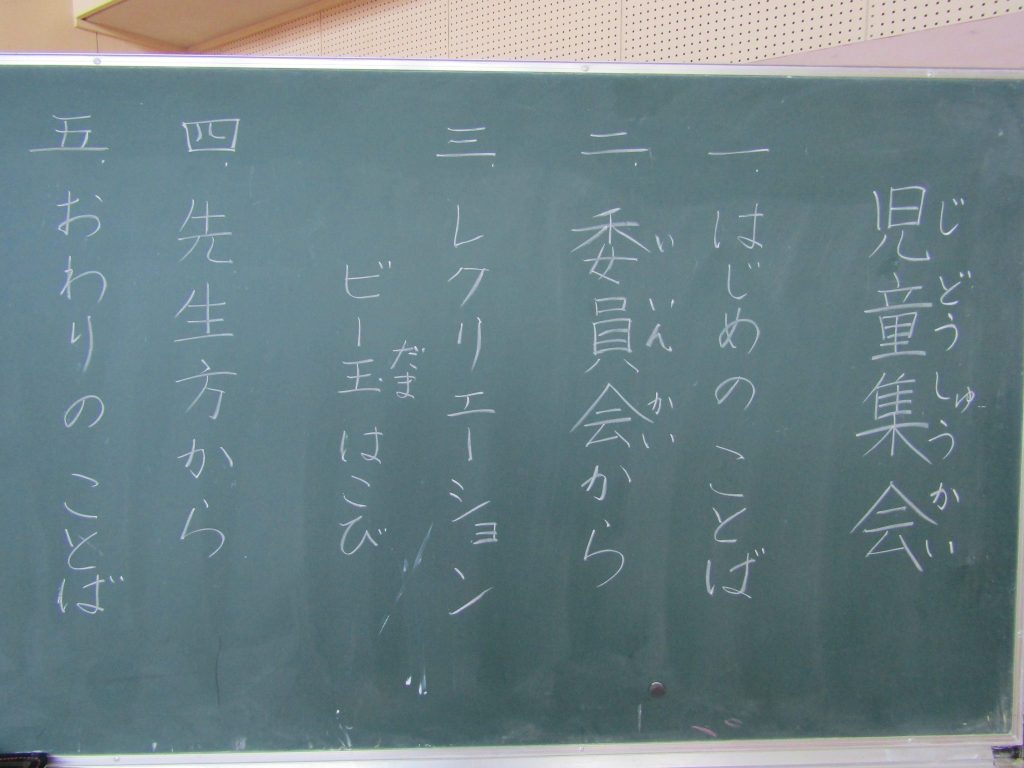 児童集会
じどうしゅうかい
一. はじめのことば
二. 委員会から
いいんかい
三. レクリエーション
ビー玉はこび
だま
四. 先生方から
五. おわりのことば